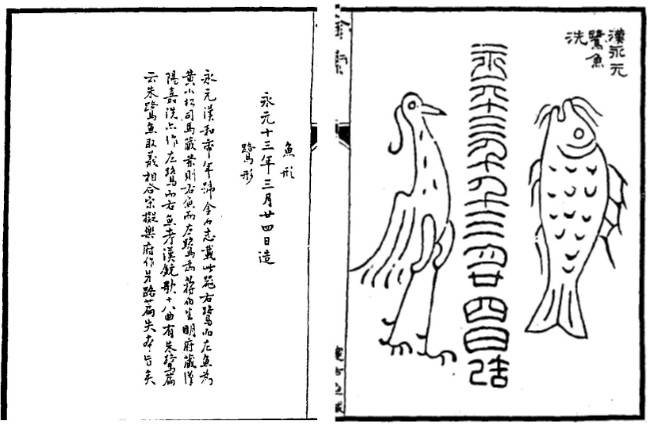 漢永元
鷺魚
洗
永元十三年三月廿四日造
魚形
永元十三年三月廿四日造
鷺形
永元漢和帝年號金石志載此右鷺而左魚為
黃小松司馬藏則右魚而左鷺蔣伯生明府藏漢
陽嘉洗亦作左鷺而右魚考漢鐃歌十八曲有朱鷺篇
云朱鷺魚義相合宗擬樂府作篇失矣